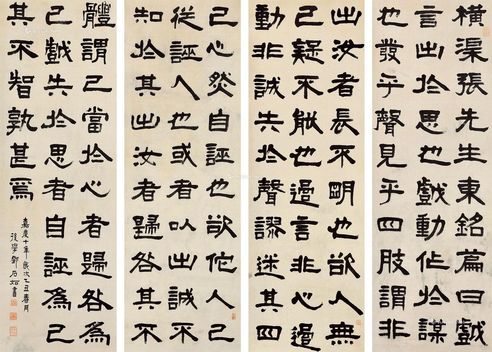 橫渠張先生東銘篇曰戲
言出於思也戲動作於謀
也發乎聲見乎四肢謂非
出汝者長不明也欲人無
己疑不能也過言非心過
動非誠失於聲謬迷其四
己心然自誣也欲佗人己
從誣人也或者以出誠不
知於其出汝者歸咎其不
體謂己當於心者歸咎為
己戲失於思者自誣為己
其不智孰甚焉
嘉慶十年歲次乙丑月
後學鄧石如書